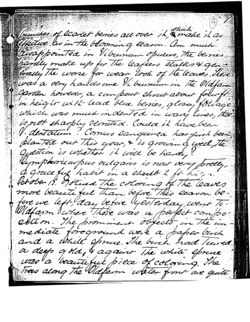 bunches of scarlet berries all over it, which make it as
effective as in the blooming season. Am much
disappointed in Viburnum opulus, the berries
hardly make up for the leafless stalks & gen-
erally the worse for wear look of the leaves. There
was a very handsome Viburnum in the Oldfarm
garden however, a compact shrub about four ft.
in height with lead blue berries, glossy foliage
which was much indented in wavy lines, tho'
not sharply dentated. Could it have been
V. dentatum? Cornus sanguinea has just been
planted out this year, & is growing well, the
question is whether it will be hardy.
Symphoricarpus vulgaris is now very pretty,
a graceful habit in a shrub 2 ft high.
October 15. Found the coloring of the leaves
more beautiful than ever this season be-
fore we left, day before yesterday, went to
Oldfarm where there was a perfect compo-
sition. The prominent objects in the im-
mediate foreground were a paper birch
and a white spruce. The birch had turned
a deep gold, & against the white spruce
was a beautiful piece of coloring. The
trees along the Oldfarm water front are quite